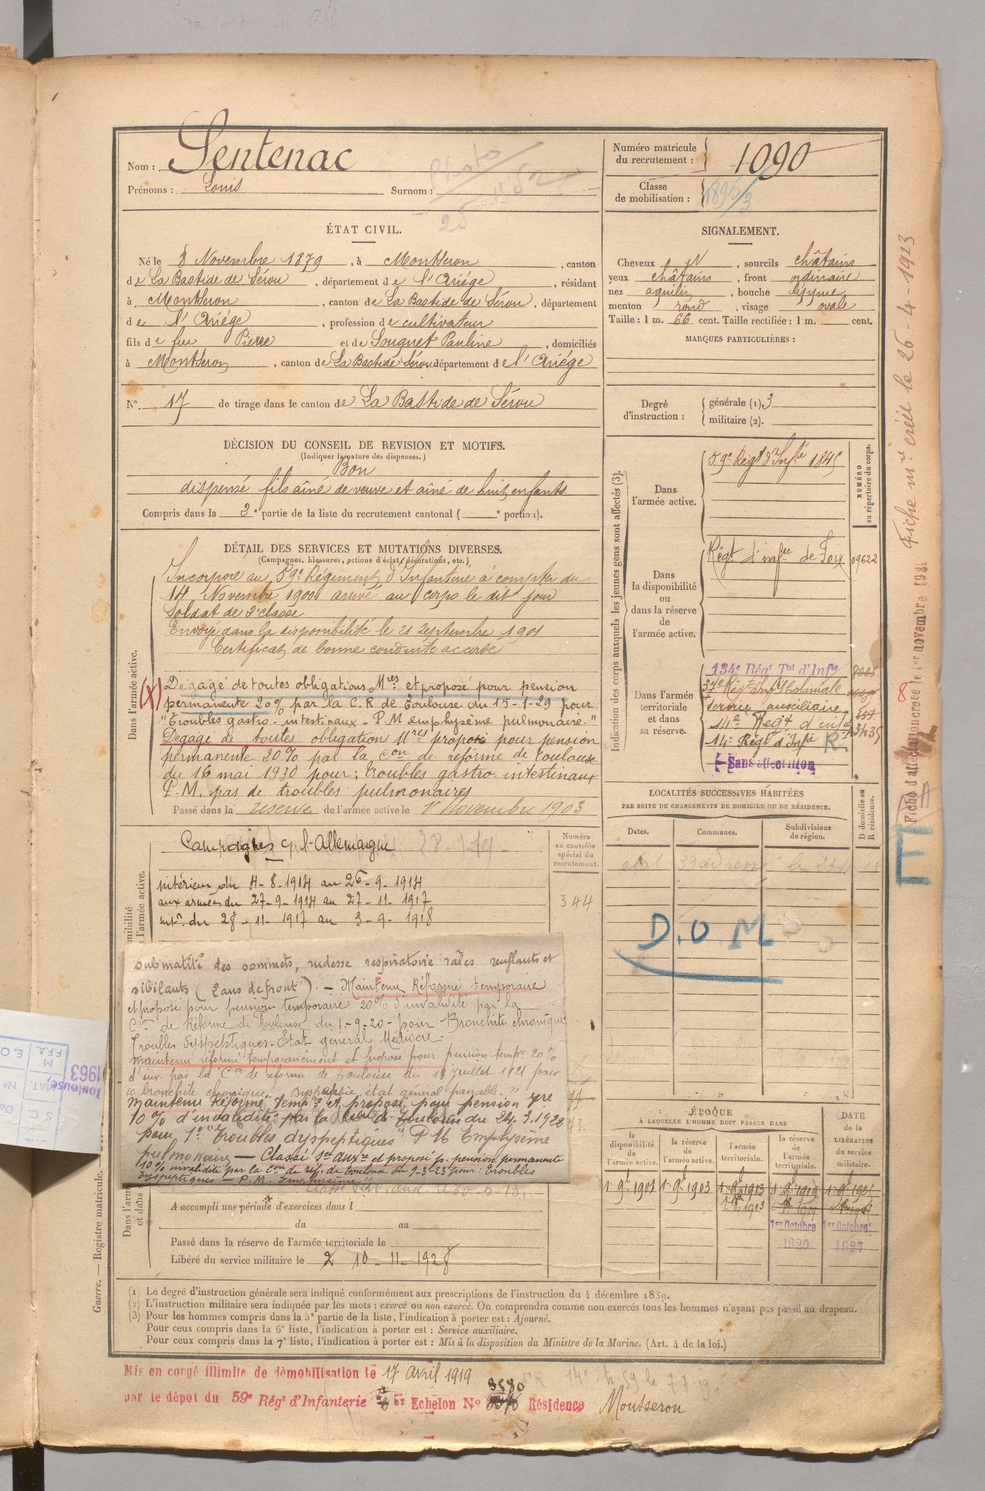 Nom : Sentenac
Prénoms : Louis Surnom :
Photo
Numéro matricule du recrutement : 1090
Classe de mobilisation :
ÉTAT CIVIL.
Né le 8 Novembre 1879, à Montseron, canton
de La Bastide de Sérou, département de l'Ariège, résidant
à Montseron, canton de La Bastide de Sérou, département
de l'Ariège, profession de cultivateur
fils de feu Pierre et de Souquet Pauline, domiciliés
à Montseron, canton de La Bastide Sérou département de l'Ariège
N° 17 de tirage dans le canton de La Bastide de Sérou
SIGNALEMENT.
Cheveux N, sourcils châtains
yeux châtains, front ordinaire
nez aquilin, bouche moyenne
menton rond, visage ovale
Taille : 1 m. 66 cent. Taille rectifiée : 1 m. cent.
MARQUES PARTICULIÈRES :
Degré d'instruction : générale (1). 3
militaire (2).
DÉCISION DU CONSEIL DE REVISION ET MOTIFS.
(Indiquer la nature des dispenses.)
Bon
dispensé fils aîné de veuve et aîné de huit enfants
Compris dans la 2e partie de la liste du recrutement cantonal ( e portion).
DÉTAIL DES SERVICES ET MUTATIONS DIVERSES.
(Campagnes, blessures, actions d'éclat, décorations, etc.)
Dans l'armée active.
Incorporé au 59e Régiment d'Infanterie à compter du
14 Novembre 1900 arrivé au corps le dit jour
Soldat de 2e classe
Envoyé dans la disponibilité le 21 Septembre 1901
Certificat de bonne conduite accordé
(X) Dégagé de toutes obligations Mres et proposé pour pension
permanente 20% par la C.R de Toulouse du 15-1-29 pour
"Troubles gastro-intestinaux - P.M. emphysème pulmonaire"
Dégagé de toutes obligation Mres proposé pour pension
permanente 20% par la Con de réforme de Toulouse
du 16 mai 1930 pour : troubles gastro-intestinaux
P.M. pas de troubles pulmonaires
Passé dans la réserve de l'armée active le 1er Novembre 1903
Campagnes c/ l'Allemagne
intérieur du 4-8-1914 au 26-9-1914
aux armées du 27-9-1914 au 27-11-1917
intr. du 28-11-1917 au 3-9-1918
Numéro au contrôle spécial du recrutement.
344
submatité des sommets, rudesse respiratoire rales ronflants et
sibilants (2 ans de front). - Maintenu Réforme temporaire
et proposé pour pension temporaire 20% d'invalidité par la
Con de Réforme de Toulouse du 1-9-20 - pour Bronchite chronique
Troubles dyspeptiques - Etat général médiocre -
Maintenu réformé temporairement et proposé pour pension tempre 20%
d'inv. par la Con de réforme de Toulouse du 18 juillet 1921 pour
bronchite chronique, dyspepsie état général passable.
Maintenu Réformé Tempre et proposé pour pension
10% d'invalidité par la de Toulouse du 24.3.1922
pour 1° "Troubles dyspeptiques" P.M. Emphysème
pulmonaire - Classé Sce Auxre et proposé p. pension permanente
10% invalidité par la Con de réf. de Toulouse du 9-3-23 pour : Troubles
dyspeptiques - P.M. Emphysème
A accompli une période d'exercices dans l
du au
Passé dans la réserve de l'armée territoriale le
Libéré du service militaire le 10-11-1928
Indication des corps auxquels les jeunes gens sont affectés (3).
NUMÉRO au répertoire du corps.
Dans l'armée active.
59e Régt d'Infie 1845
Dans la disponibilité ou dans la réserve de l'armée active.
Régt d'infie de Foix 09622
Dans l'armée territoriale et dans sa réserve.
134e Régt Tal d'Infie
37e Régt Inf Coloniale
Service auxiliaire
14e Regt d'inf
14e Régt d'Infie R
Sans affectation
LOCALITÉS SUCCESSIVES HABITÉES
PAR SUITE DE CHANGEMENTS DE DOMICILE OU DE RÉSIDENCE.
Dates. Communes. Subdivisions de région. D domicile ou R résidence.
D.O.M
ÉPOQUE
À LAQUELLE L'HOMME DOIT PASSER DANS
la disponibilité de l'armée active. la réserve de l'armée active. l'armée territoriale. la réserve de l'armée territoriale. DATE DE LA LIBÉRATION DU SERVICE MILITAIRE.
1-9-1901 1-9-1903
1er Octobre 1er Octobre
1920 1927
(1) Le degré d'instruction générale sera indiqué conformément aux prescriptions de l'instruction du 4 décembre 1889.
(2) L'instruction militaire sera indiquée par les mots : exercé ou non exercé. On comprendra comme non exercés tous les hommes n'ayant pas passé au drapeau.
(3) Pour les hommes compris dans la 5e partie de la liste, l'indication à porter est : Ajourné.
Pour ceux compris dans la 6e liste, l'indication à porter est : Service auxiliaire.
Pour ceux compris dans la 7e liste, l'indication à porter est : Mis à la disposition du Ministre de la Marine. (Art. 4 de la loi.)
Mis en congé illimité de démobilisation le 17 avril 1919
par le dépôt du 59e Régt d'Infanterie Echelon N° 3580 Résidence Montseron
Guerre. — Registre matricule.
Toulouse
1963